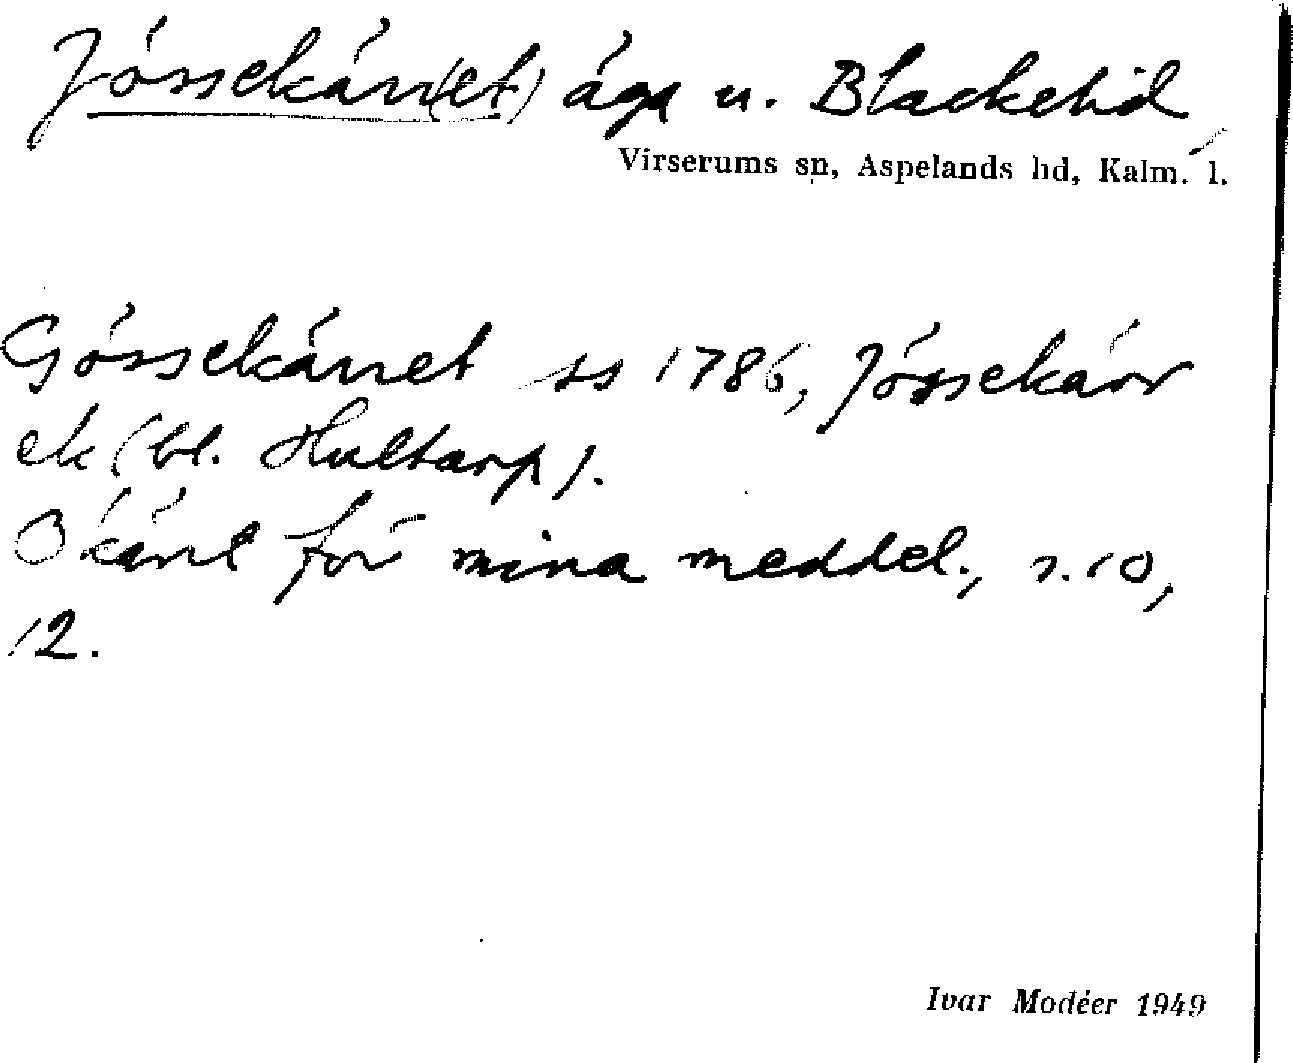 Jössekärr(et) äga u. Blackehid
Virserums sn, Aspelands hd, Kalm. l.
Gössekärret ss 1786, Jössekärr
ek (bl. Hultarp).
Okänt för mina meddel., n. 10,
12.
Ivar Modéer 1949